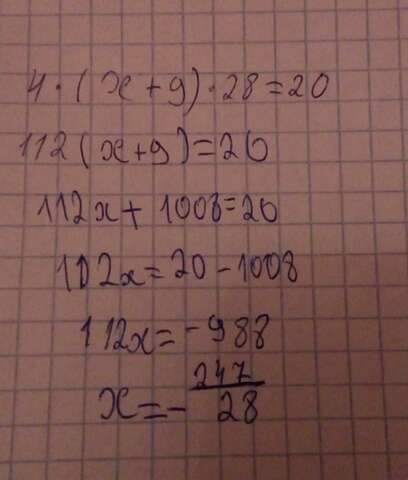 4·(x+9)·28=20
112(x+9)=20
112x+1008=20
112x=20-1008
112x=-988
x=-247/28